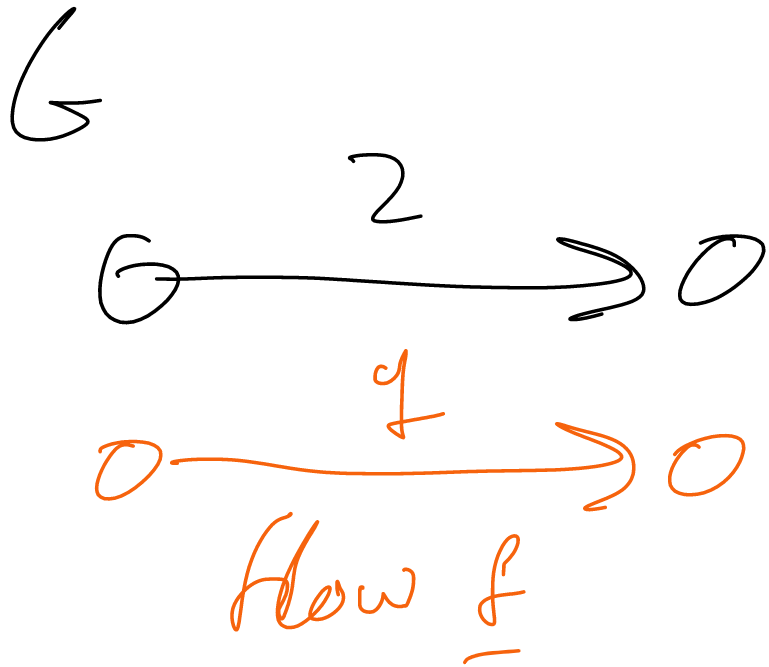 G
2
1
flow f